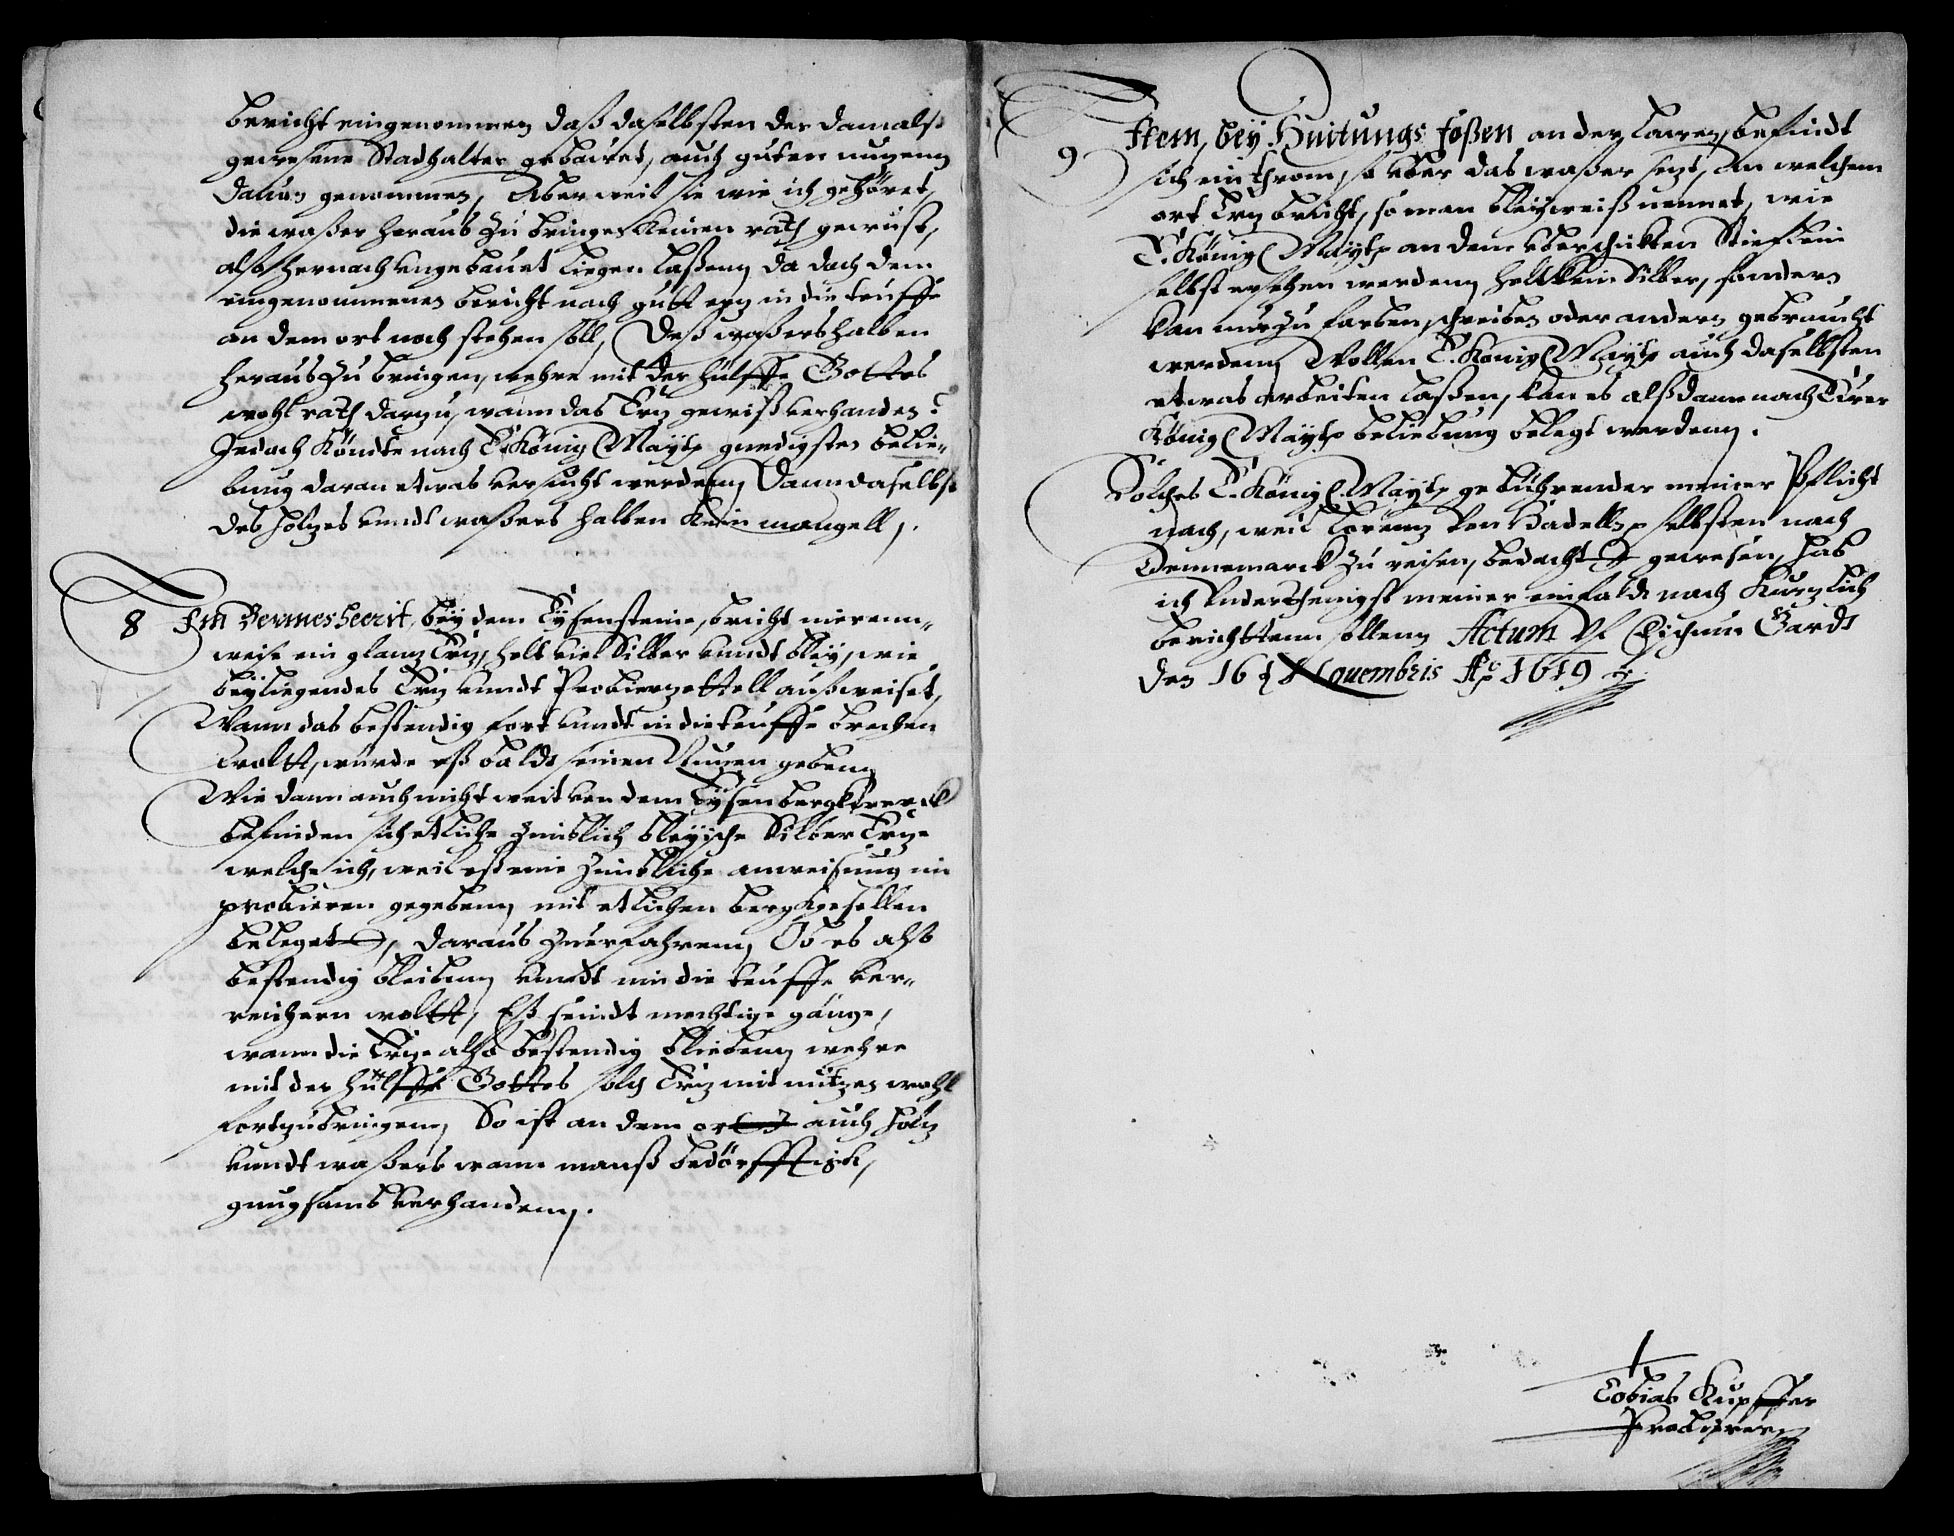 bericht eingenommen daß daselbsten der damalß
gewesene Stadhalter gebauet, auch guten nuzenn
dauon genommen, Aber weil sie wie ich gehöret,
die waßer heraus zu bringen keinen rath gewust,
also hernach ungebauet liegen laßenn, da doch dem
eingenommenen bericht nach gutt erz in die teuffe
an dem ort noch stehen soll, Deß waßers halben
heraus zu bringen, wehre mit der hülffe Gottes
wohl rath darzu, wann das Erz gewiß verhanden:
Jedoch köndte nach E. König. Maytt. gnedigsten belie-
bung daran etwas versucht werdenn, Dann daselbst
des holzes vundt waßers halben kein mangell,.
8 Im beym dem Eysensteine, bricht nieren-
weise ein glanz Erz, helt viel Silber vundt bley, wie
beyliegendes Erz vundt Probierzettell außweiset,
Wann das bestendig fort vundt in die teuffe brechen
woltt, würde eß baldt seinen Nuzen gebenn,
Wie dann auch nicht weit von dem Eysenbergkwerck
befinden sich etliche zimblich bleyische Silber Erze
welche ich, weil eß eine zimbliche anweisung im
probieren gegebenn, mit etlichen bergkgesellen
beleget, daraus zuerfahrenn, Ob es also
bestendig bleibenn, vundt in die teuffe ver-
reichern woltt, Eß seindt mechtige gänge,
wann die Erze also bestendig bliebenn, wehre
mit der hülffe Gottes solch Erz mit nützen wohl
fortzubringenn, So ist an dem ort auch holz
vundt waßers wann manß bedörfftigk,
gnugsamb verhandenn.
9 Item, bey Huitungs foßen an der Lawen, befindt
sich ein so vber das waßer sezt, An welchem
ort Erz bricht, so man bleyweiß nennet, wie
E. König. Maytt. an dem vberschickten Stieflein
selbst ersehen werdenn, helt kein Silber, sondern
kan nur zu farben, schreiben oder anders gebraucht
werdenn, Wollen E. König. Maytt. auch daselbsten
etwas arbeiten laßen, kan es alßdann nach Eurer
König. Maytt. beliebung belegt werdenn.
Solches E. König. Maytt. gebührender meiner Pflicht
nach, weil Lorenz von Hadelln selbsten nach
Dennemarck zu reisen, bedacht gewesen, hab
ich vnderthenigst meiner einfaldt nach kurzlich
berichttenn sollenn, Actum Vf Gardt
den 16 Nouembris Ao 1619
Tobias Kupffer
Probierer